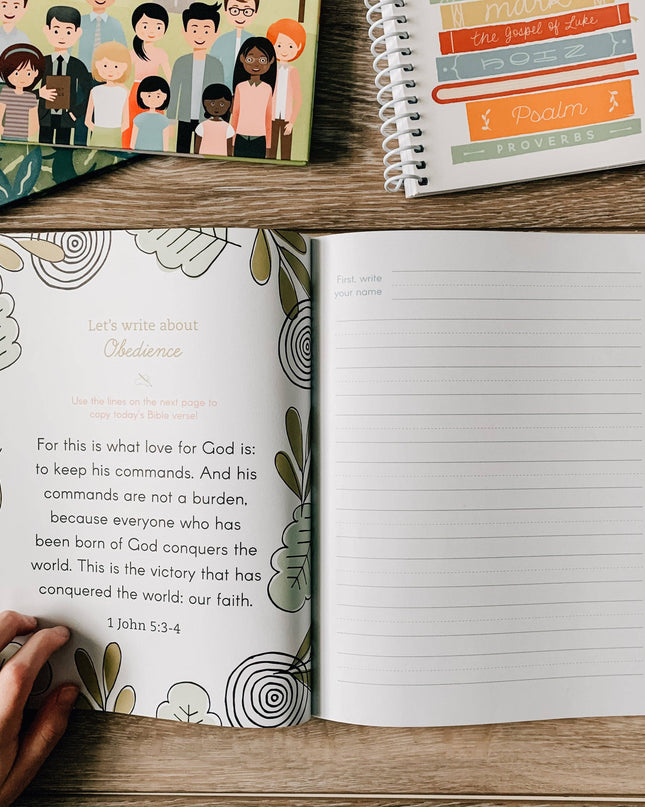 mark
the Gospel of Luke
Psalm
PROVERBS
Let's write about
Obedience
Use the lines on the next page to
copy today's Bible verse!
For this is what love for God is:
to keep his commands. And his
commands are not a burden,
because everyone who has
been born of God conquers the
world. This is the victory that has
conquered the world: our faith.
1 John 5:3-4
First, write
your name